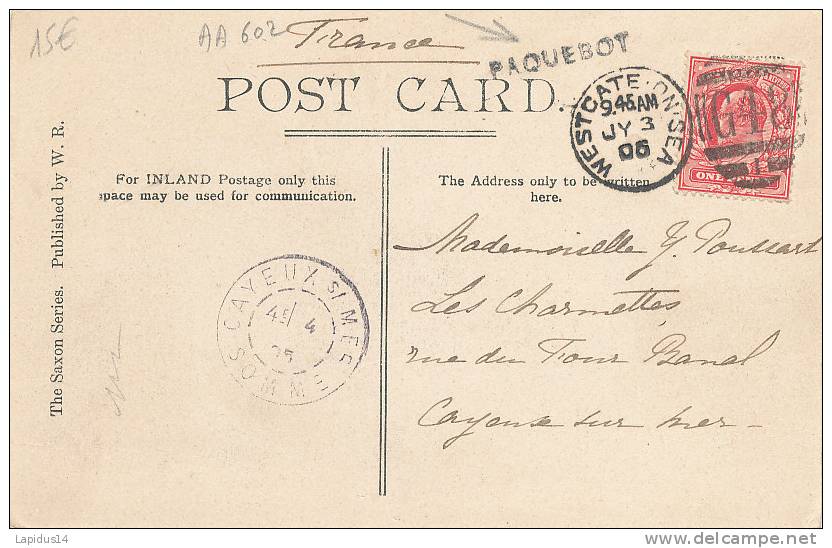 15€
AA 602
France
PAQUEBOT
POST CARD.
WESTGATE-ON-SEA
9.45AM
JY 3
06
ONE
For INLAND Postage only this
space may be used for communication.
The Address only to be written
here.
Mademoiselle Y. Poussart
Les Charmettes,
rue du Four Banal
Cayeux sur mer -
CAYEUX S/ MER
4E 4
SOMME
The Saxon Series. Published by W. R.
Lapidus14
delcampe.net